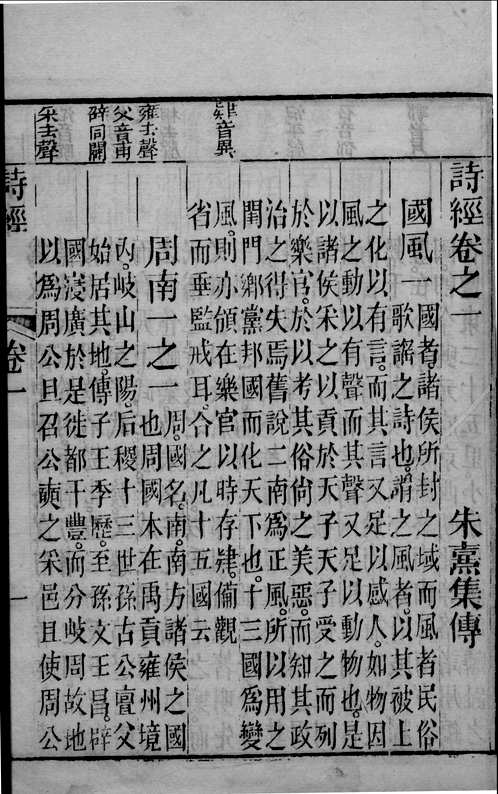 詩經卷之一　朱熹集傳
國風一　國者。諸侯所封之域。而風者民俗
歌謠之詩也。謂之風者。以其被上
之化以有言。而其言又足以感人。如物因
風之動以有聲。而其聲又足以動物也。是
以諸侯采之以貢於天子。天子受之而列
於樂官。於以考其俗尚之美惡。而知其政
治之得失焉。舊說二南爲正風。所以用之
閨門鄉黨邦國而化天下也。十三國爲變
風。則亦頒在樂官以時存肄。備觀
省而垂監戒耳。合之凡十五國云
肄音異
周南一之一　周。國名。南。南方諸侯之國
也。周國本在禹貢雍州境
內。岐山之陽。后稷十三世孫古公亶父
始居其地。傳子王季歷。至孫文王昌。辟
國寖廣。於是徙都于豐。而分岐周故地
以爲周公旦召公奭之采邑。且使周公
雍去聲
父音甫
辟同闢
采去聲
詩經
卷一
一